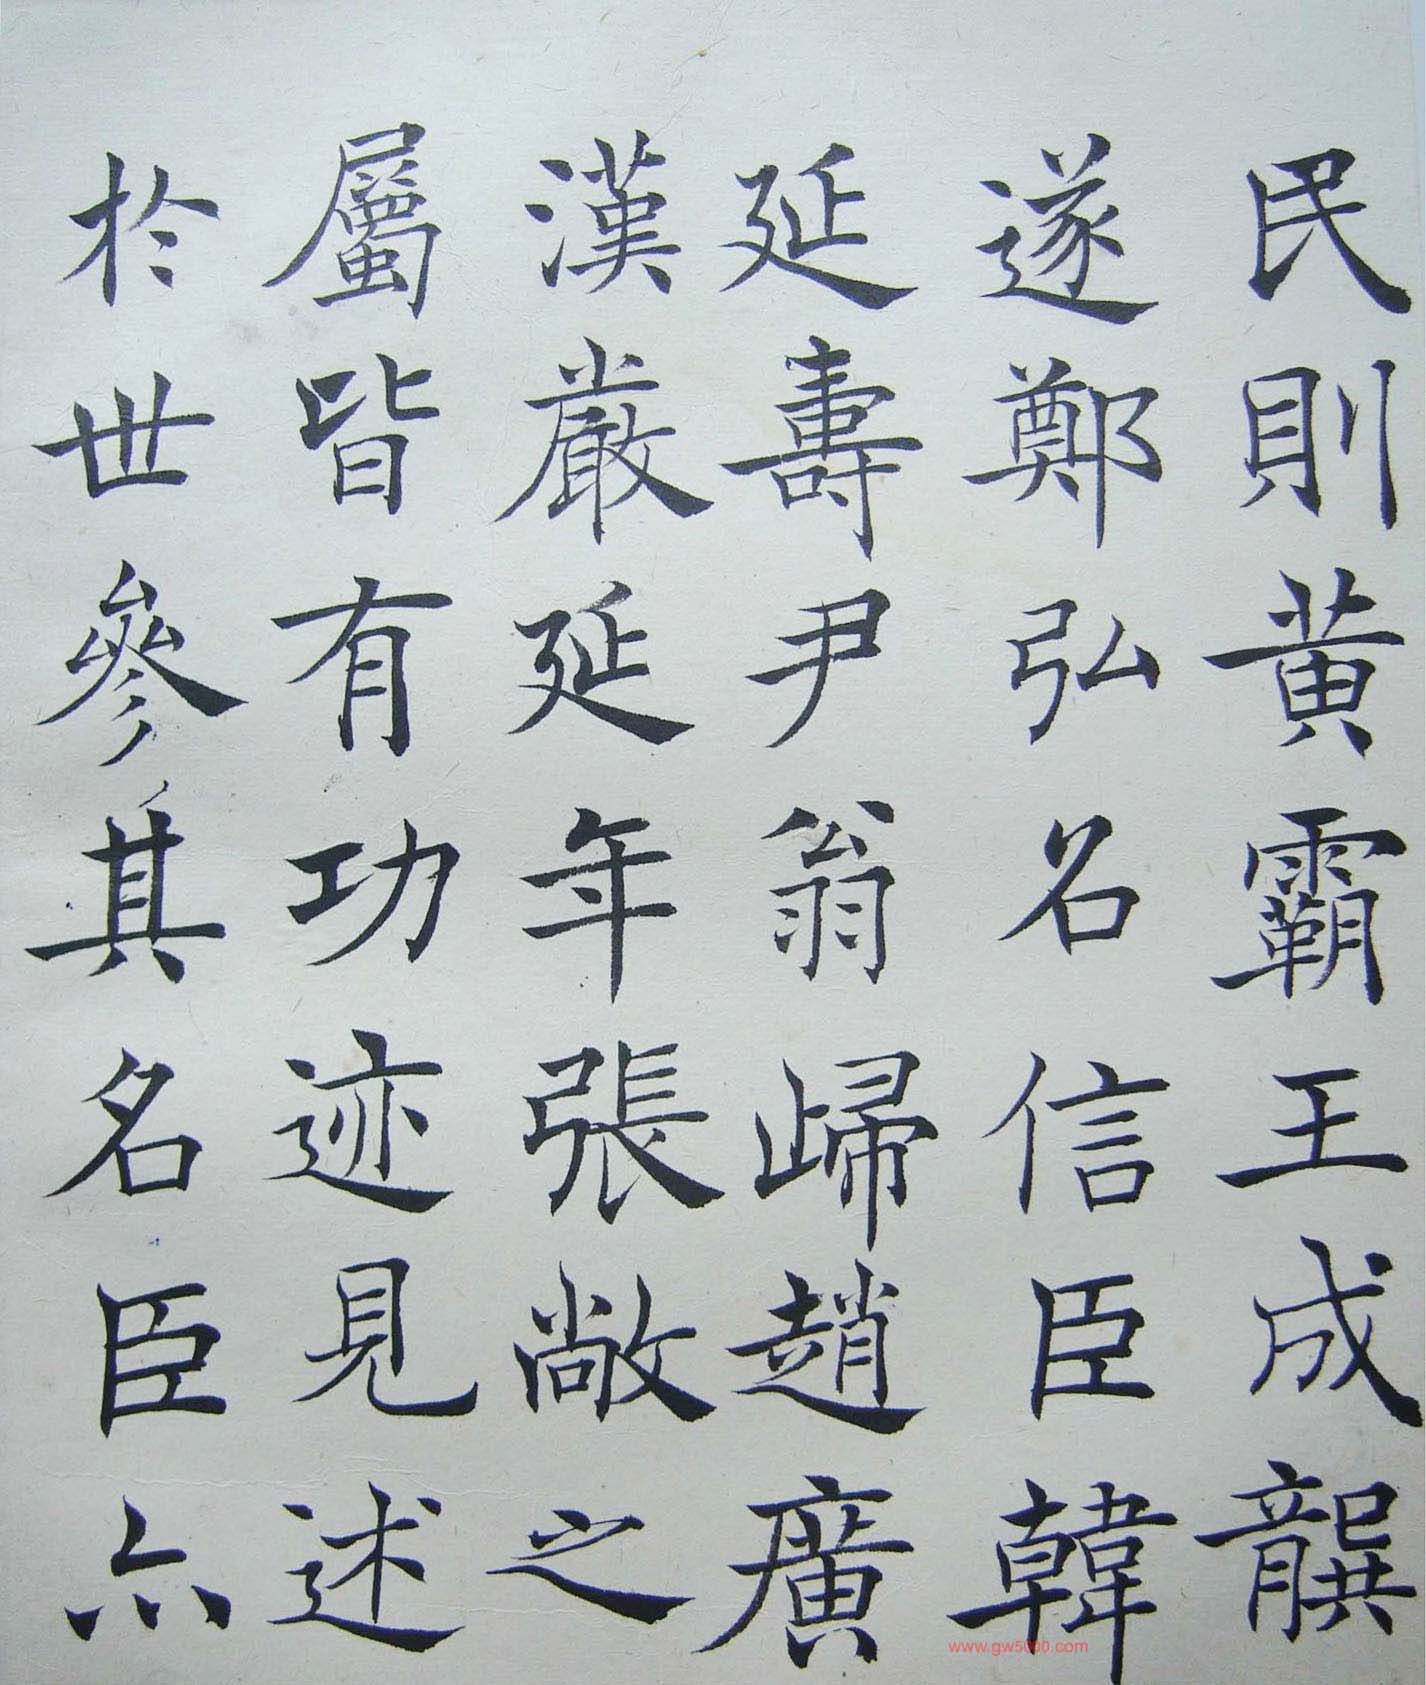 民則黃霸王成龔
遂鄭弘名信臣韓
延壽尹翁歸趙廣
漢嚴延年張敞之
屬皆有功迹見述
於世參其名臣亦
www.gw5000.com